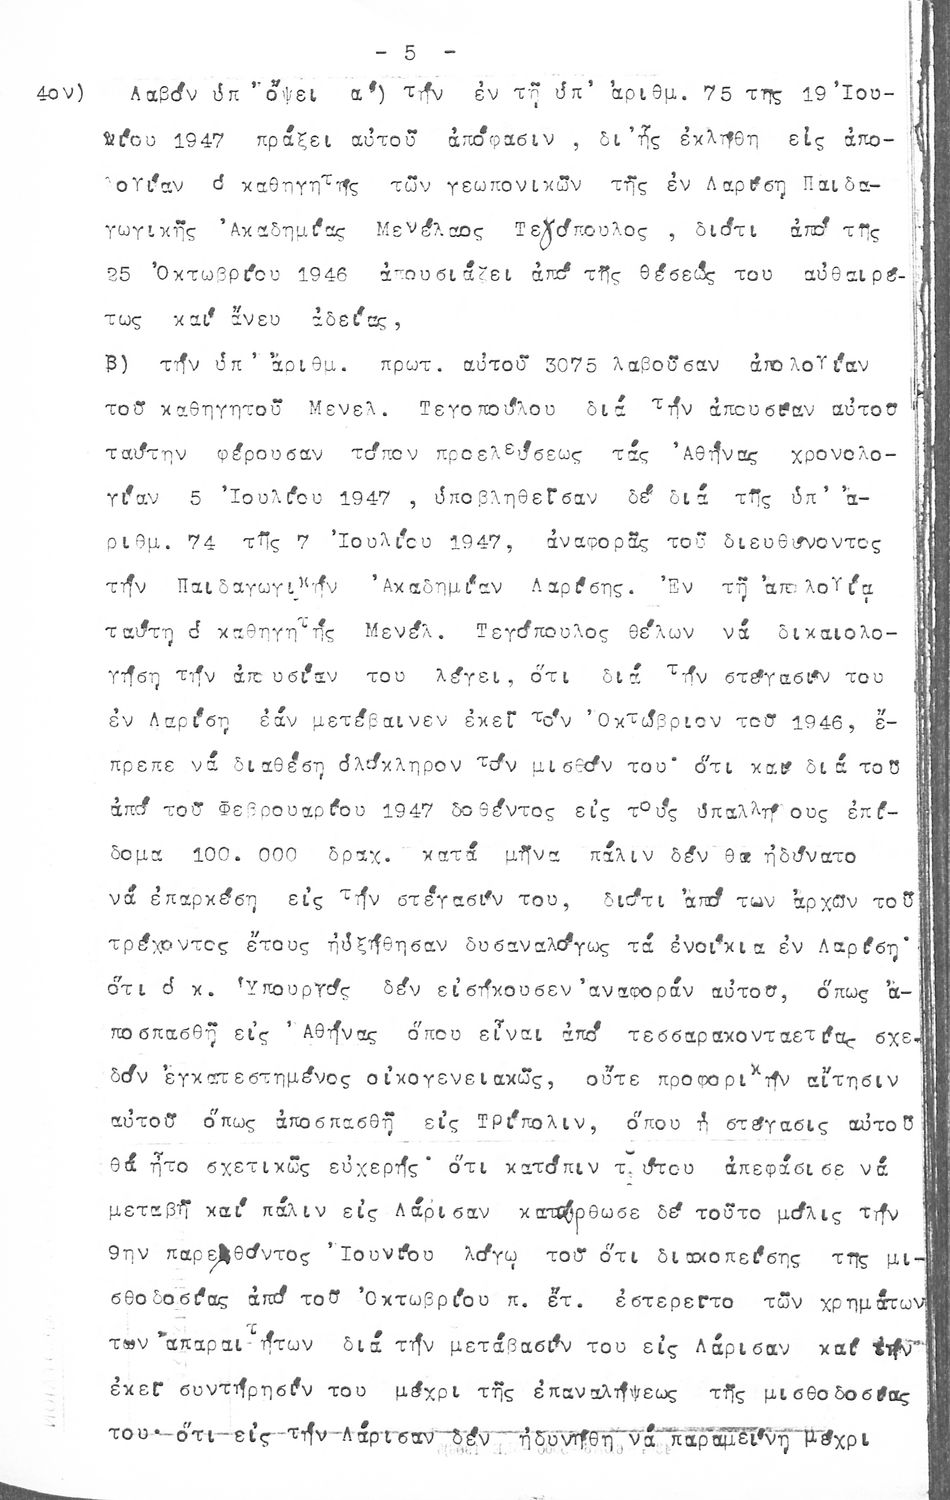 - 5 -
4ον) Λαβόν ὑπ' ὄψει α') τήν ἐν τῇ ὑπ' ἀριθμ. 75 της 19 Ἰου-
νίου 1947 πράξει αὐτοῦ ἀπόφασιν , δι' ἧς ἐκλήθη εἰς ἀπο-
λογίαν ὁ καθηγητής τῶν γεωπονικῶν τῆς ἐν Λαρίσῃ Παιδα-
γωγικῆς Ἀκαδημίας Μενέλαος Τεγόπουλος , διότι ἀπό τῆς
25 Ὀκτωβρίου 1946 ἀπουσιάζει ἀπό τῆς θέσεώς του αὐθαιρέ-
τως καί ἄνευ ἀδείας,
β) τήν ὑπ' ἄριθμ. πρωτ. αὐτοῦ 3075 λαβοῦσαν ἀπολογίαν
τοῦ καθηγητοῦ Μενελ. Τεγοπούλου διά τήν ἀπουσίαν αὐτοῦ
ταύτην φέρουσαν τόπον προελεύσεως τάς Ἀθήνας χρονολο-
γίαν 5 Ἰουλίου 1947 , ὑποβληθεῖσαν δέ διά τῆς ὑπ' ἀ-
ριθμ. 74 τῆς 7 Ἰουλίου 1947, ἀναφορᾶς τοῦ διευθύνοντος
τήν Παιδαγωγικήν Ἀκαδημίαν Λαρίσης. Ἐν τῇ ἀπολογίᾳ
ταύτῃ ὁ καθηγητής Μενέλ. Τεγόπουλος θέλων νά δικαιολο-
γήσῃ τήν ἀπουσίαν του λέγει, ὅτι διά τήν στέγασίν του
ἐν Λαρίσῃ ἐάν μετέβαινεν ἐκεῖ τόν Ὀκτώβριον τοῦ 1946, ἔ-
πρεπε νά διαθέσῃ ὁλόκληρον τόν μισθόν του· ὅτι καί διά τοῦ
ἀπό τοῦ Φεβρουαρίου 1947 δοθέντος εἰς τούς ὑπαλλήλους ἐπί-
δομα 100.000 δραχ. κατά μῆνα πάλιν δέν θα ἠδύνατο
νά ἐπαρκέσῃ εἰς τήν στέγασίν του, διότι ἀπό των ἀρχῶν τοῦ
τρέχοντος ἔτους ηὐξήθησαν δυσαναλόγως τά ἐνοίκια ἐν Λαρίσῃ·
ὅτι ὁ κ. Ὑπουργός δέν εἰσήκουσεν ἀναφοράν αὐτοῦ, ὅπως ἀ-
ποσπασθῇ εἰς Ἀθήνας ὅπου εἶναι ἀπό τεσσαρακονταετίας σχε-
δόν ἐγκατεστημένος οἰκογενειακῶς, οὔτε προφορικήν αἴτησιν
αὐτοῦ ὅπως ἀποσπασθῇ εἰς Τρίπολιν, ὅπου ἡ στέγασις αὐτοῦ
θά ἦτο σχετικῶς εὐχερής· ὅτι κατόπιν τούτου ἀπεφάσισε νά
μεταβῇ καί πάλιν εἰς Λάρισαν κατώρθωσε δέ τοῦτο μόλις τήν
9ην παρελθόντος Ἰουνίου λόγῳ τοῦ ὅτι διακοπείσης της μι-
σθοδοσίας ἀπό τοῦ Ὀκτωβρίου π. ἔτ. ἐστερεῖτο τῶν χρημάτων
των ἀπαραιτήτων διά τήν μετάβασίν του εἰς Λάρισαν καί τήν
ἐκεῖ συντήρησίν του μέχρι τῆς ἐπαναλήψεως τῆς μισθοδοσίας
του· ὅτι εἰς τήν Λάρισαν δέν ἠδυνήθη νά παραμείνῃ μέχρι